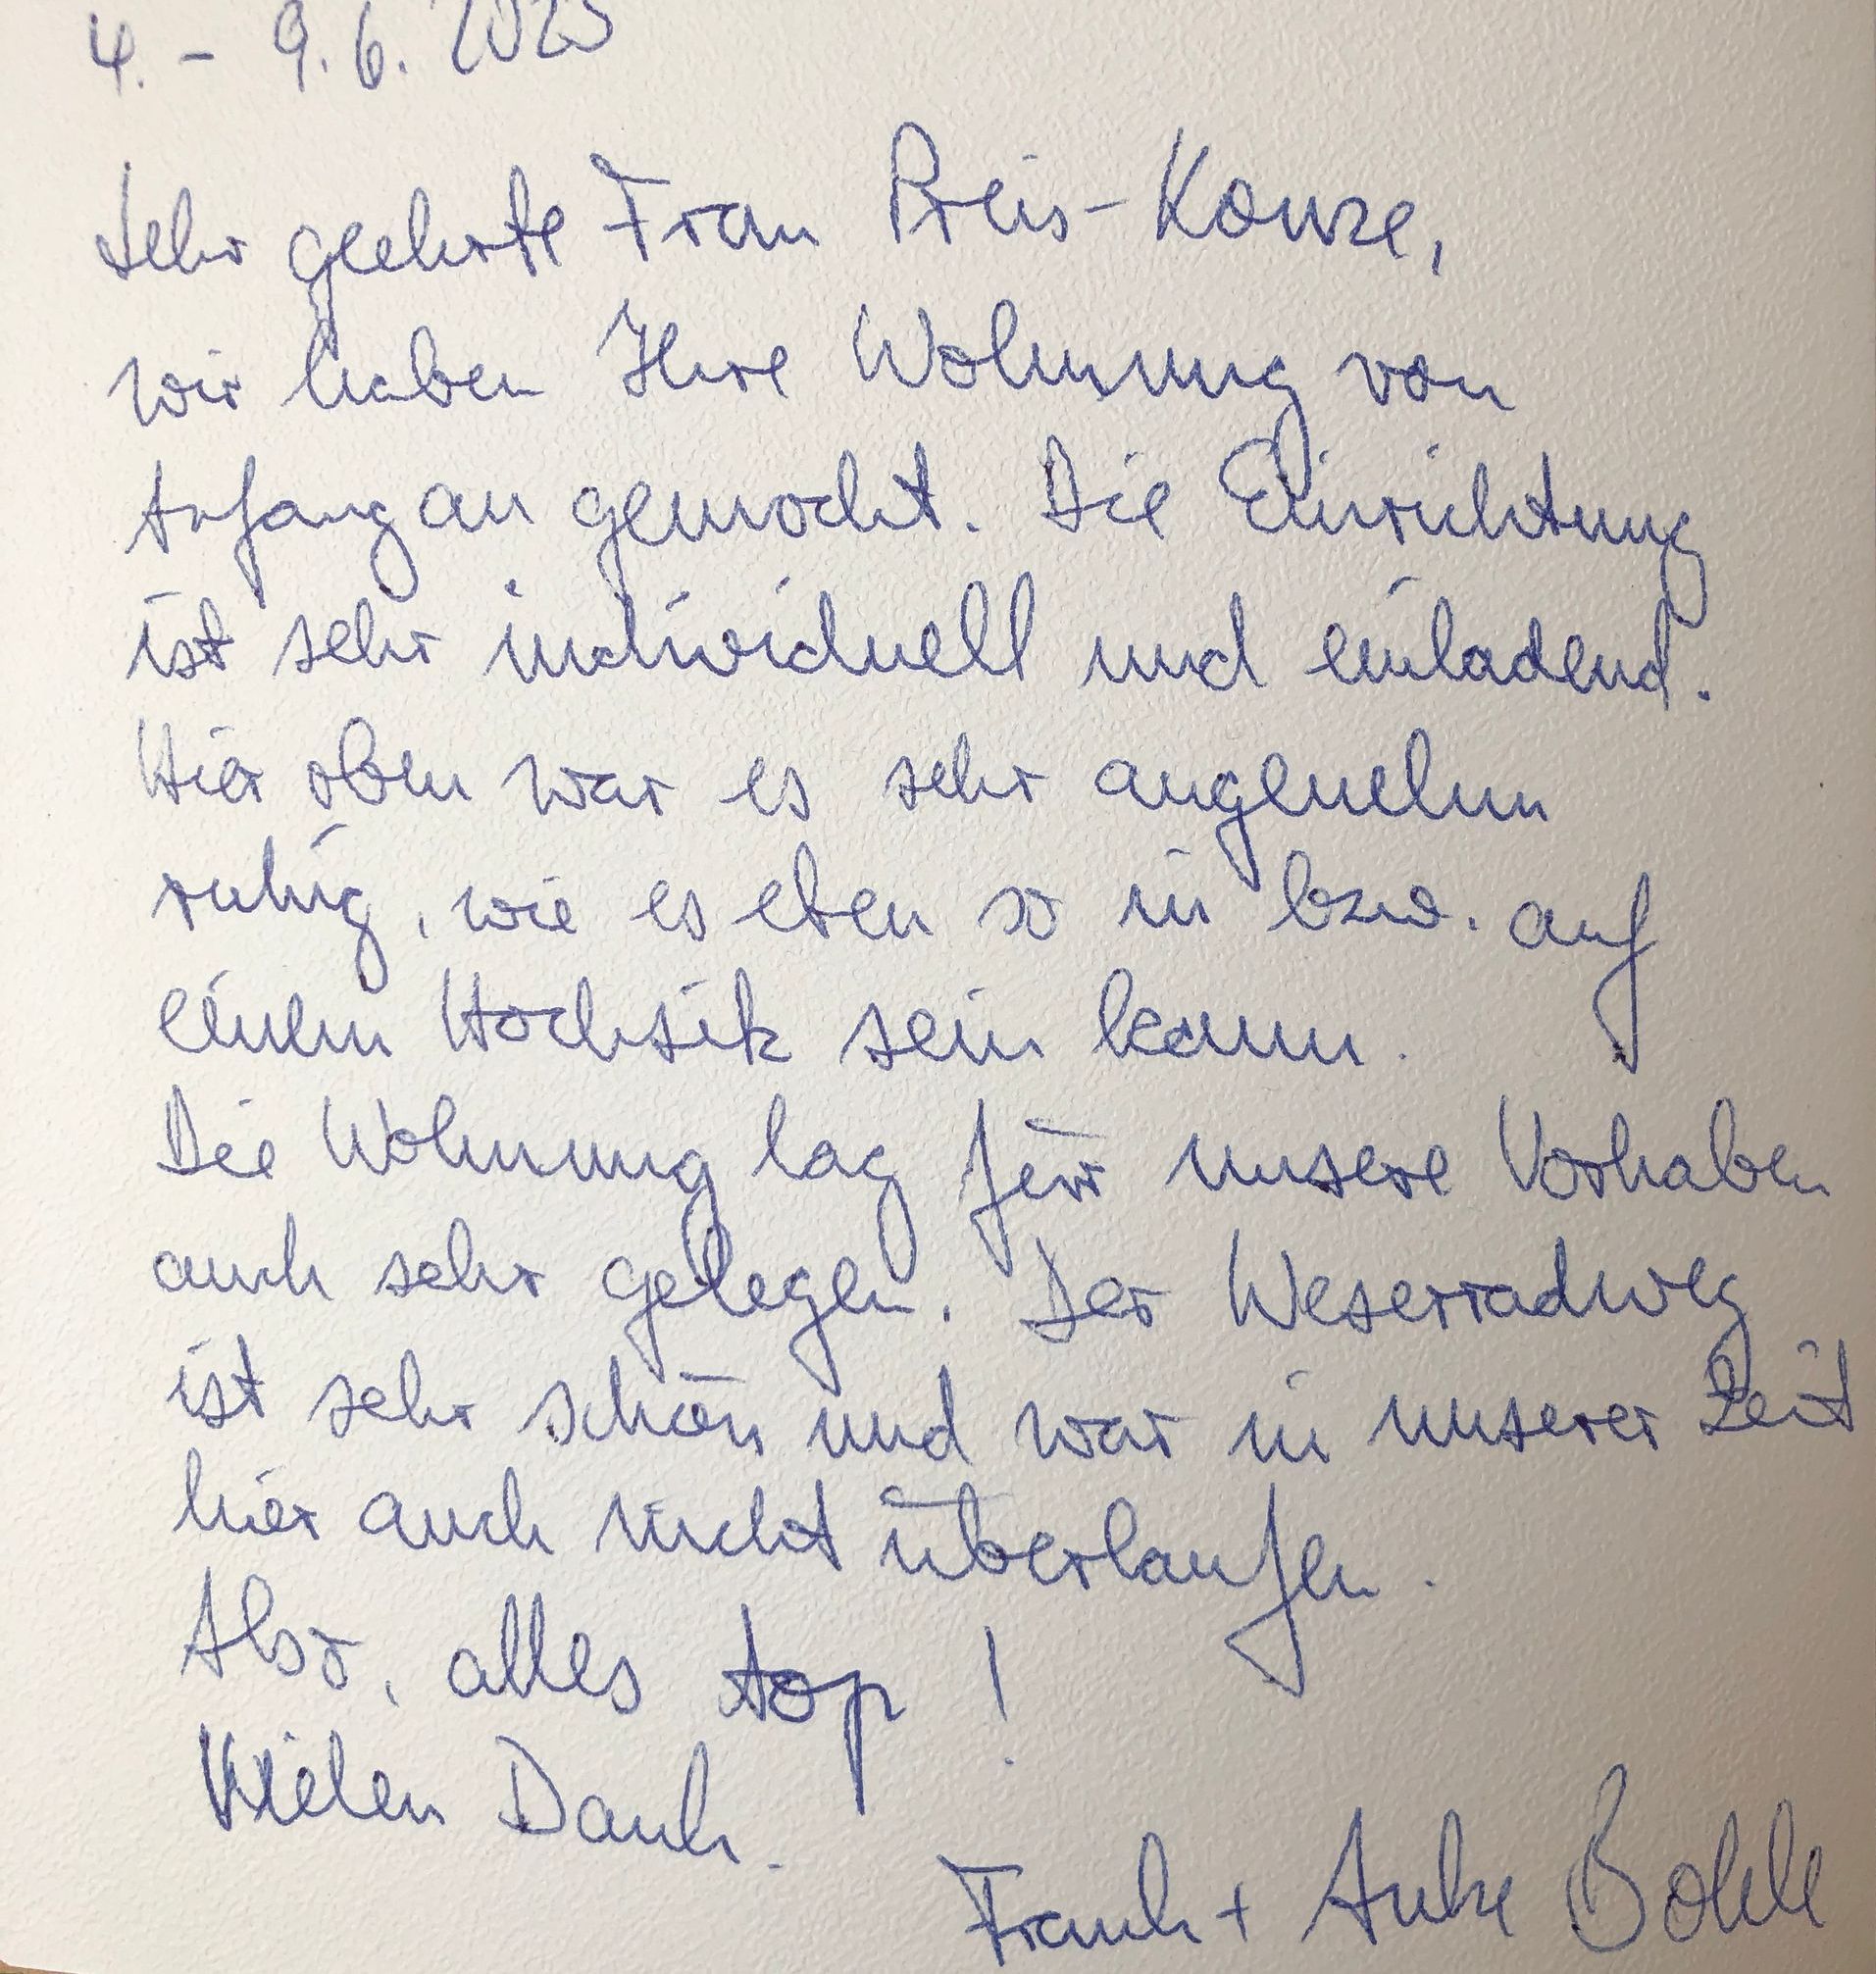 4. - 9.6. 2023
Sehr geehrte Frau Preis-Konze,
wir haben Ihre Wohnung von
Anfang an gemocht. Die Einrichtung
ist sehr individuell und einladend.
Hier oben war es sehr angenehm
ruhig, wie es eben so in bzw. auf
einem Hochsitz sein kann.
Die Wohnung lag für unsere Vorhaben
auch sehr gelegen. Der Weserradweg
ist sehr schön und war in unserer Zeit
hier auch nicht überlaufen.
Also, alles top!
Vielen Dank.
Frank + Anke